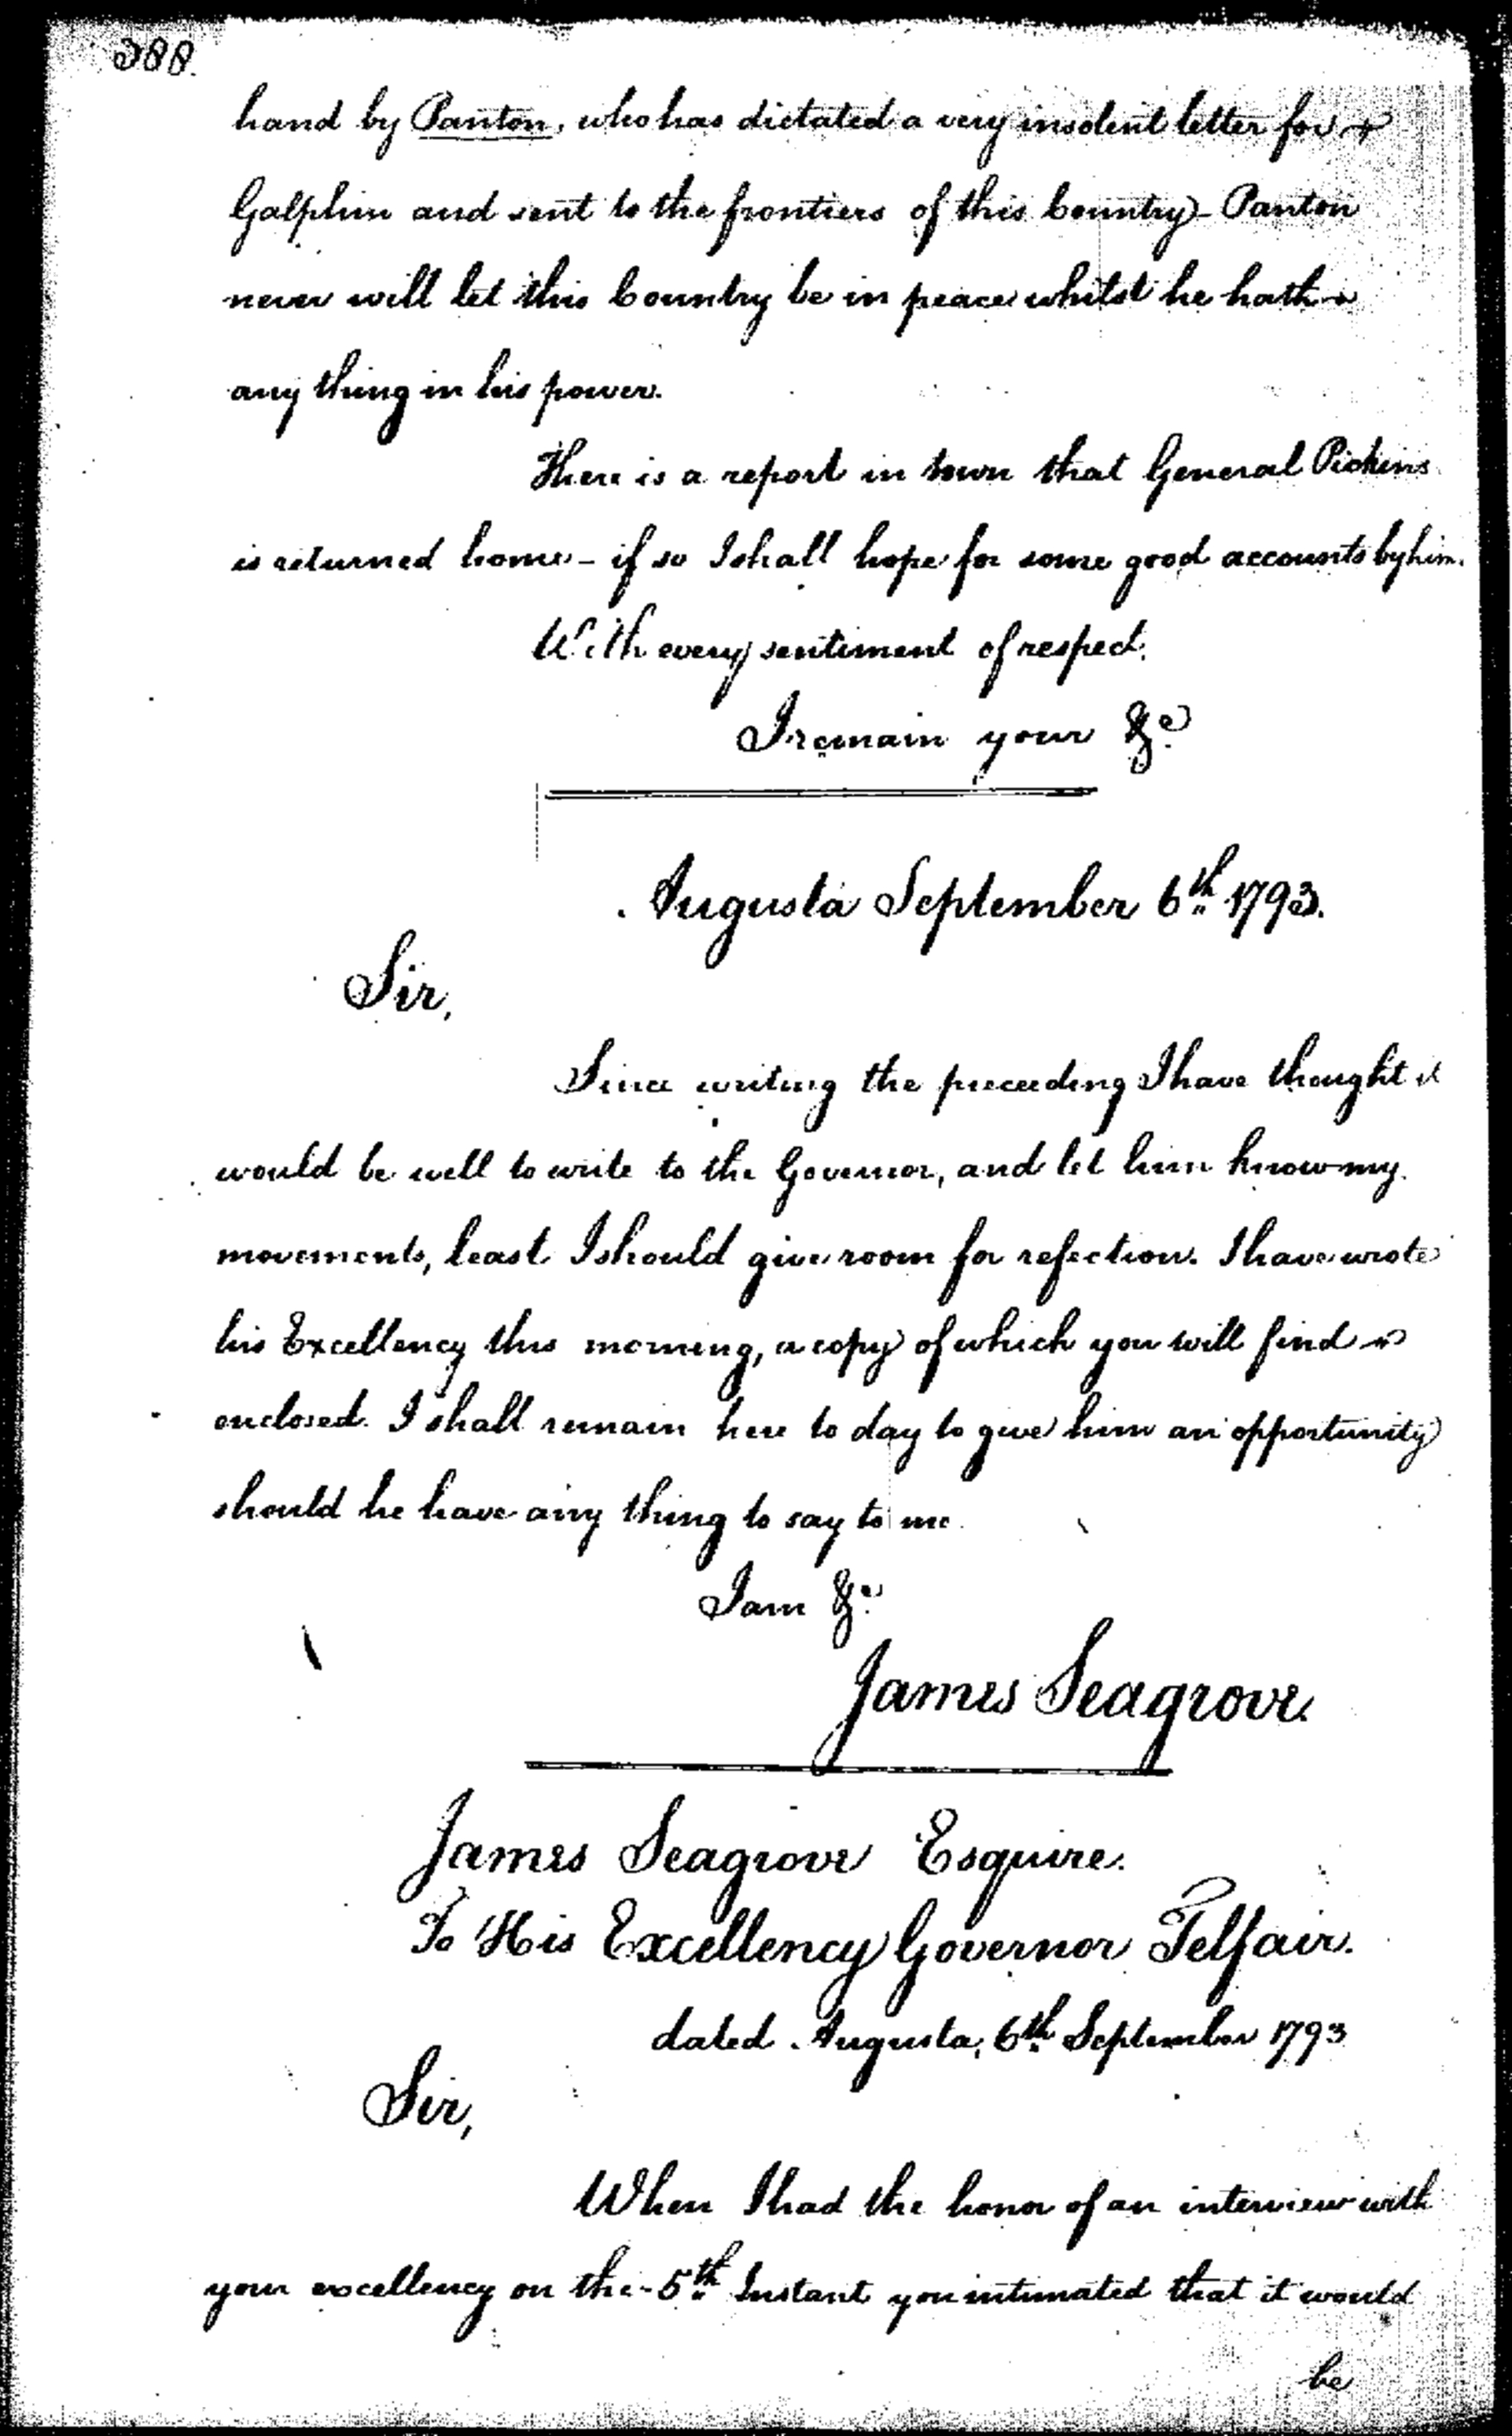 388.
hand by Panton, who has dictated a very insolent letter for
Galphin and sent to the frontiers of this Country - Panton
never will let this Country be in peace whilst he hath
any thing in his power.
There is a report in town that General Pickins
is returned home - if so I shall hope for some good accounts by him.
With every sentiment of respect.
I remain your &c.
Augusta September 6th 1793.
Sir,
Since writing the preceeding I have thought it
would be well to write to the Governor, and let him know my
movements, least I should give room for refection. I have wrote
his Excellency this morning, a copy of which you will find
enclosed. I shall remain here to day to give him an opportunity
should he have any thing to say to me.
I am &c.
James Seagrove.
James Seagrove Esquire.
To His Excellency Governor Telfair.
dated Augusta, 6th September 1793
Sir,
When I had the honor of an interview with
your excellency on the - 5th Instant you intimated that it would
be